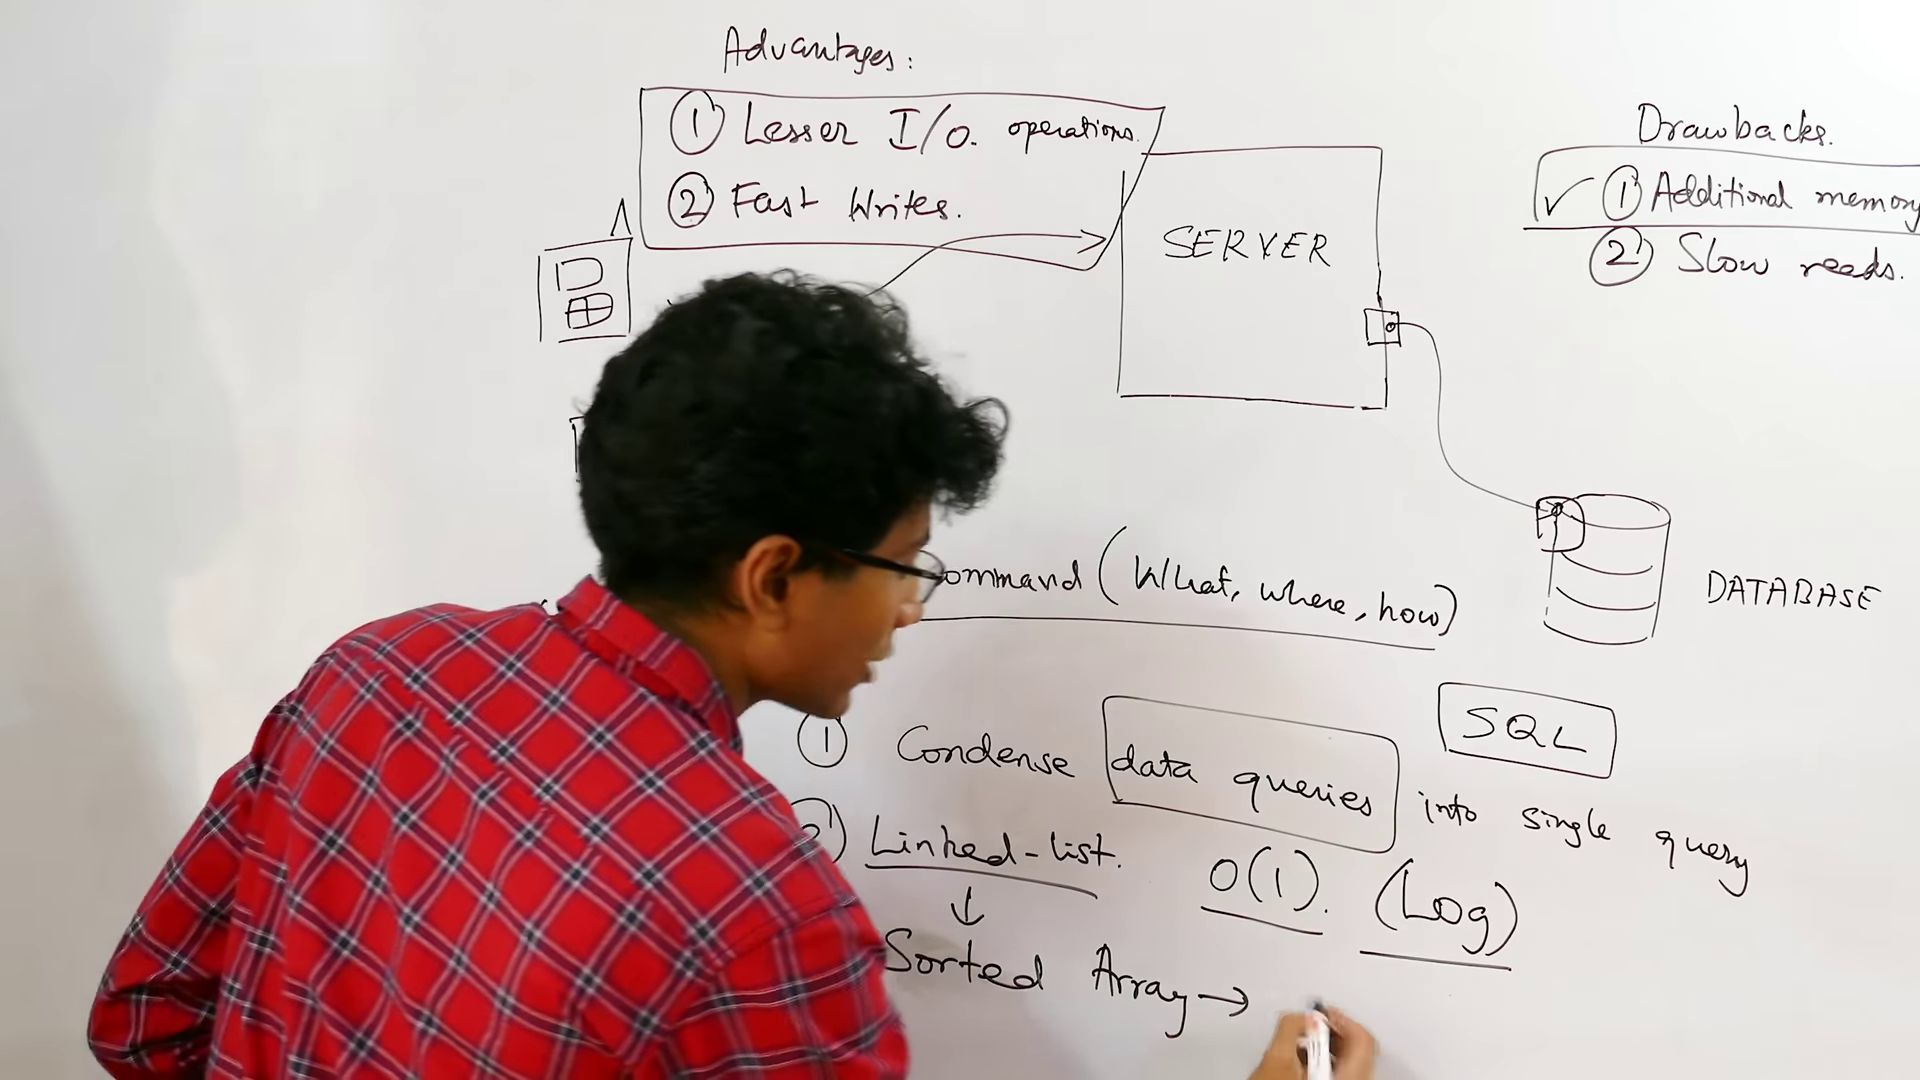 Advantages:
① Lesser I/O. operations.
② Fast Writes.
SERVER
Drawbacks.
✓ ① Additional memory
② Slow reads.
DATABASE
(What, where, how)
SQL
① Condense data queries into single query
Linked-list.
O(1). (Log)
↓
Sorted Array →